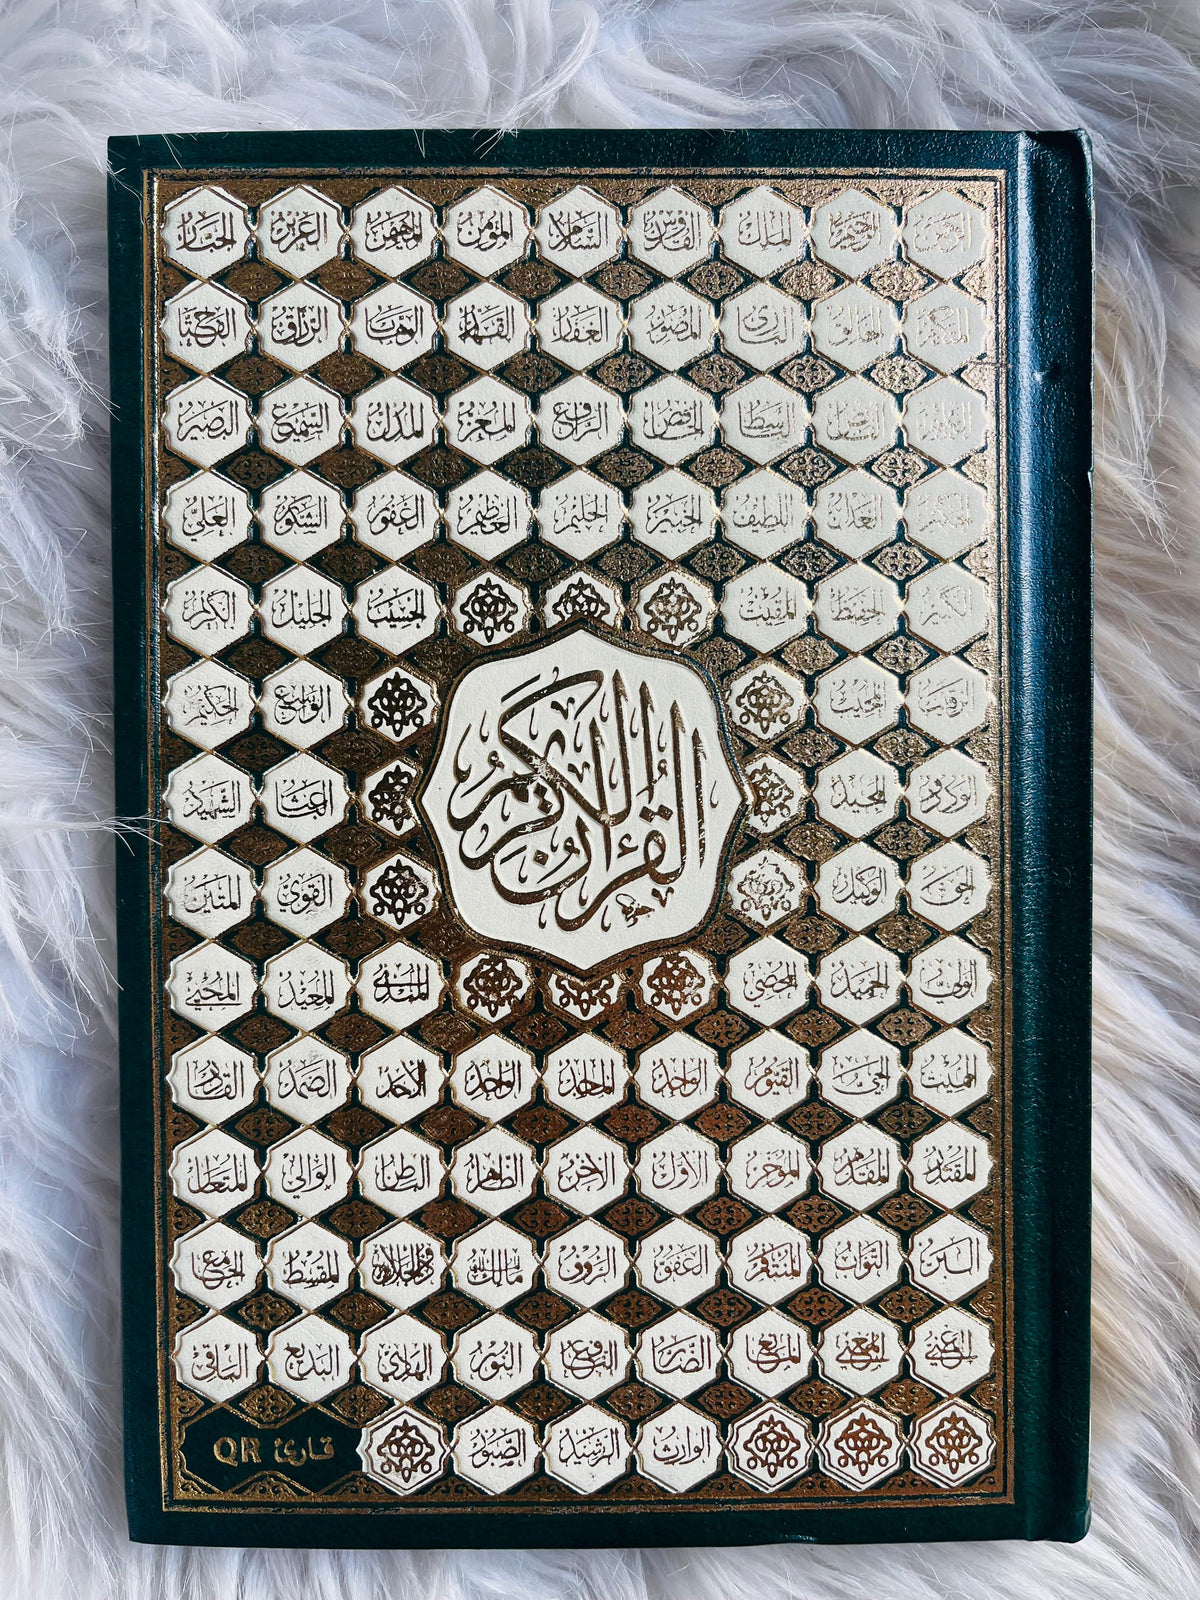 الرحمن الرحيم الملك القدوس السلام المؤمن المهيمن العزيز الجبار
المتكبر الخالق البارئ المصور الغفار القهار الوهاب الرزاق الفتاح
العليم القابض الباسط الخافض الرافع المعز المذل السميع البصير
الحكم العدل اللطيف الخبير الحليم العظيم الغفور الشكور العلي
الكبير الحفيظ المقيت الحسيب الجليل الكريم
الرقيب المجيب الواسع الحكيم
الودود المجيد الباعث الشهيد
القرآن الكريم
الحق الوكيل القوي المتين
الولي الحميد المحصي المبدئ المعيد المحيي
المميت الحي القيوم الواجد الماجد الواحد الأحد الصمد القادر
المقتدر المقدم المؤخر الأول الآخر الظاهر الباطن الوالي المتعال
البر التواب المنتقم العفو الرؤوف مالك الملك ذو الجلال المقسط الجامع
الغني المغني المانع الضار النافع النور الهادي البديع الباقي
الوارث الرشيد الصبور
قارئ QR